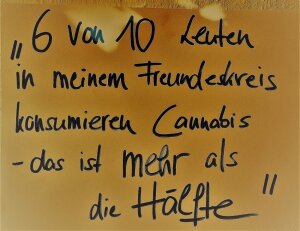 „6 von 10 Leuten
in meinem Freundeskreis
konsumieren Cannabis
- das ist mehr als
die Hälfte"